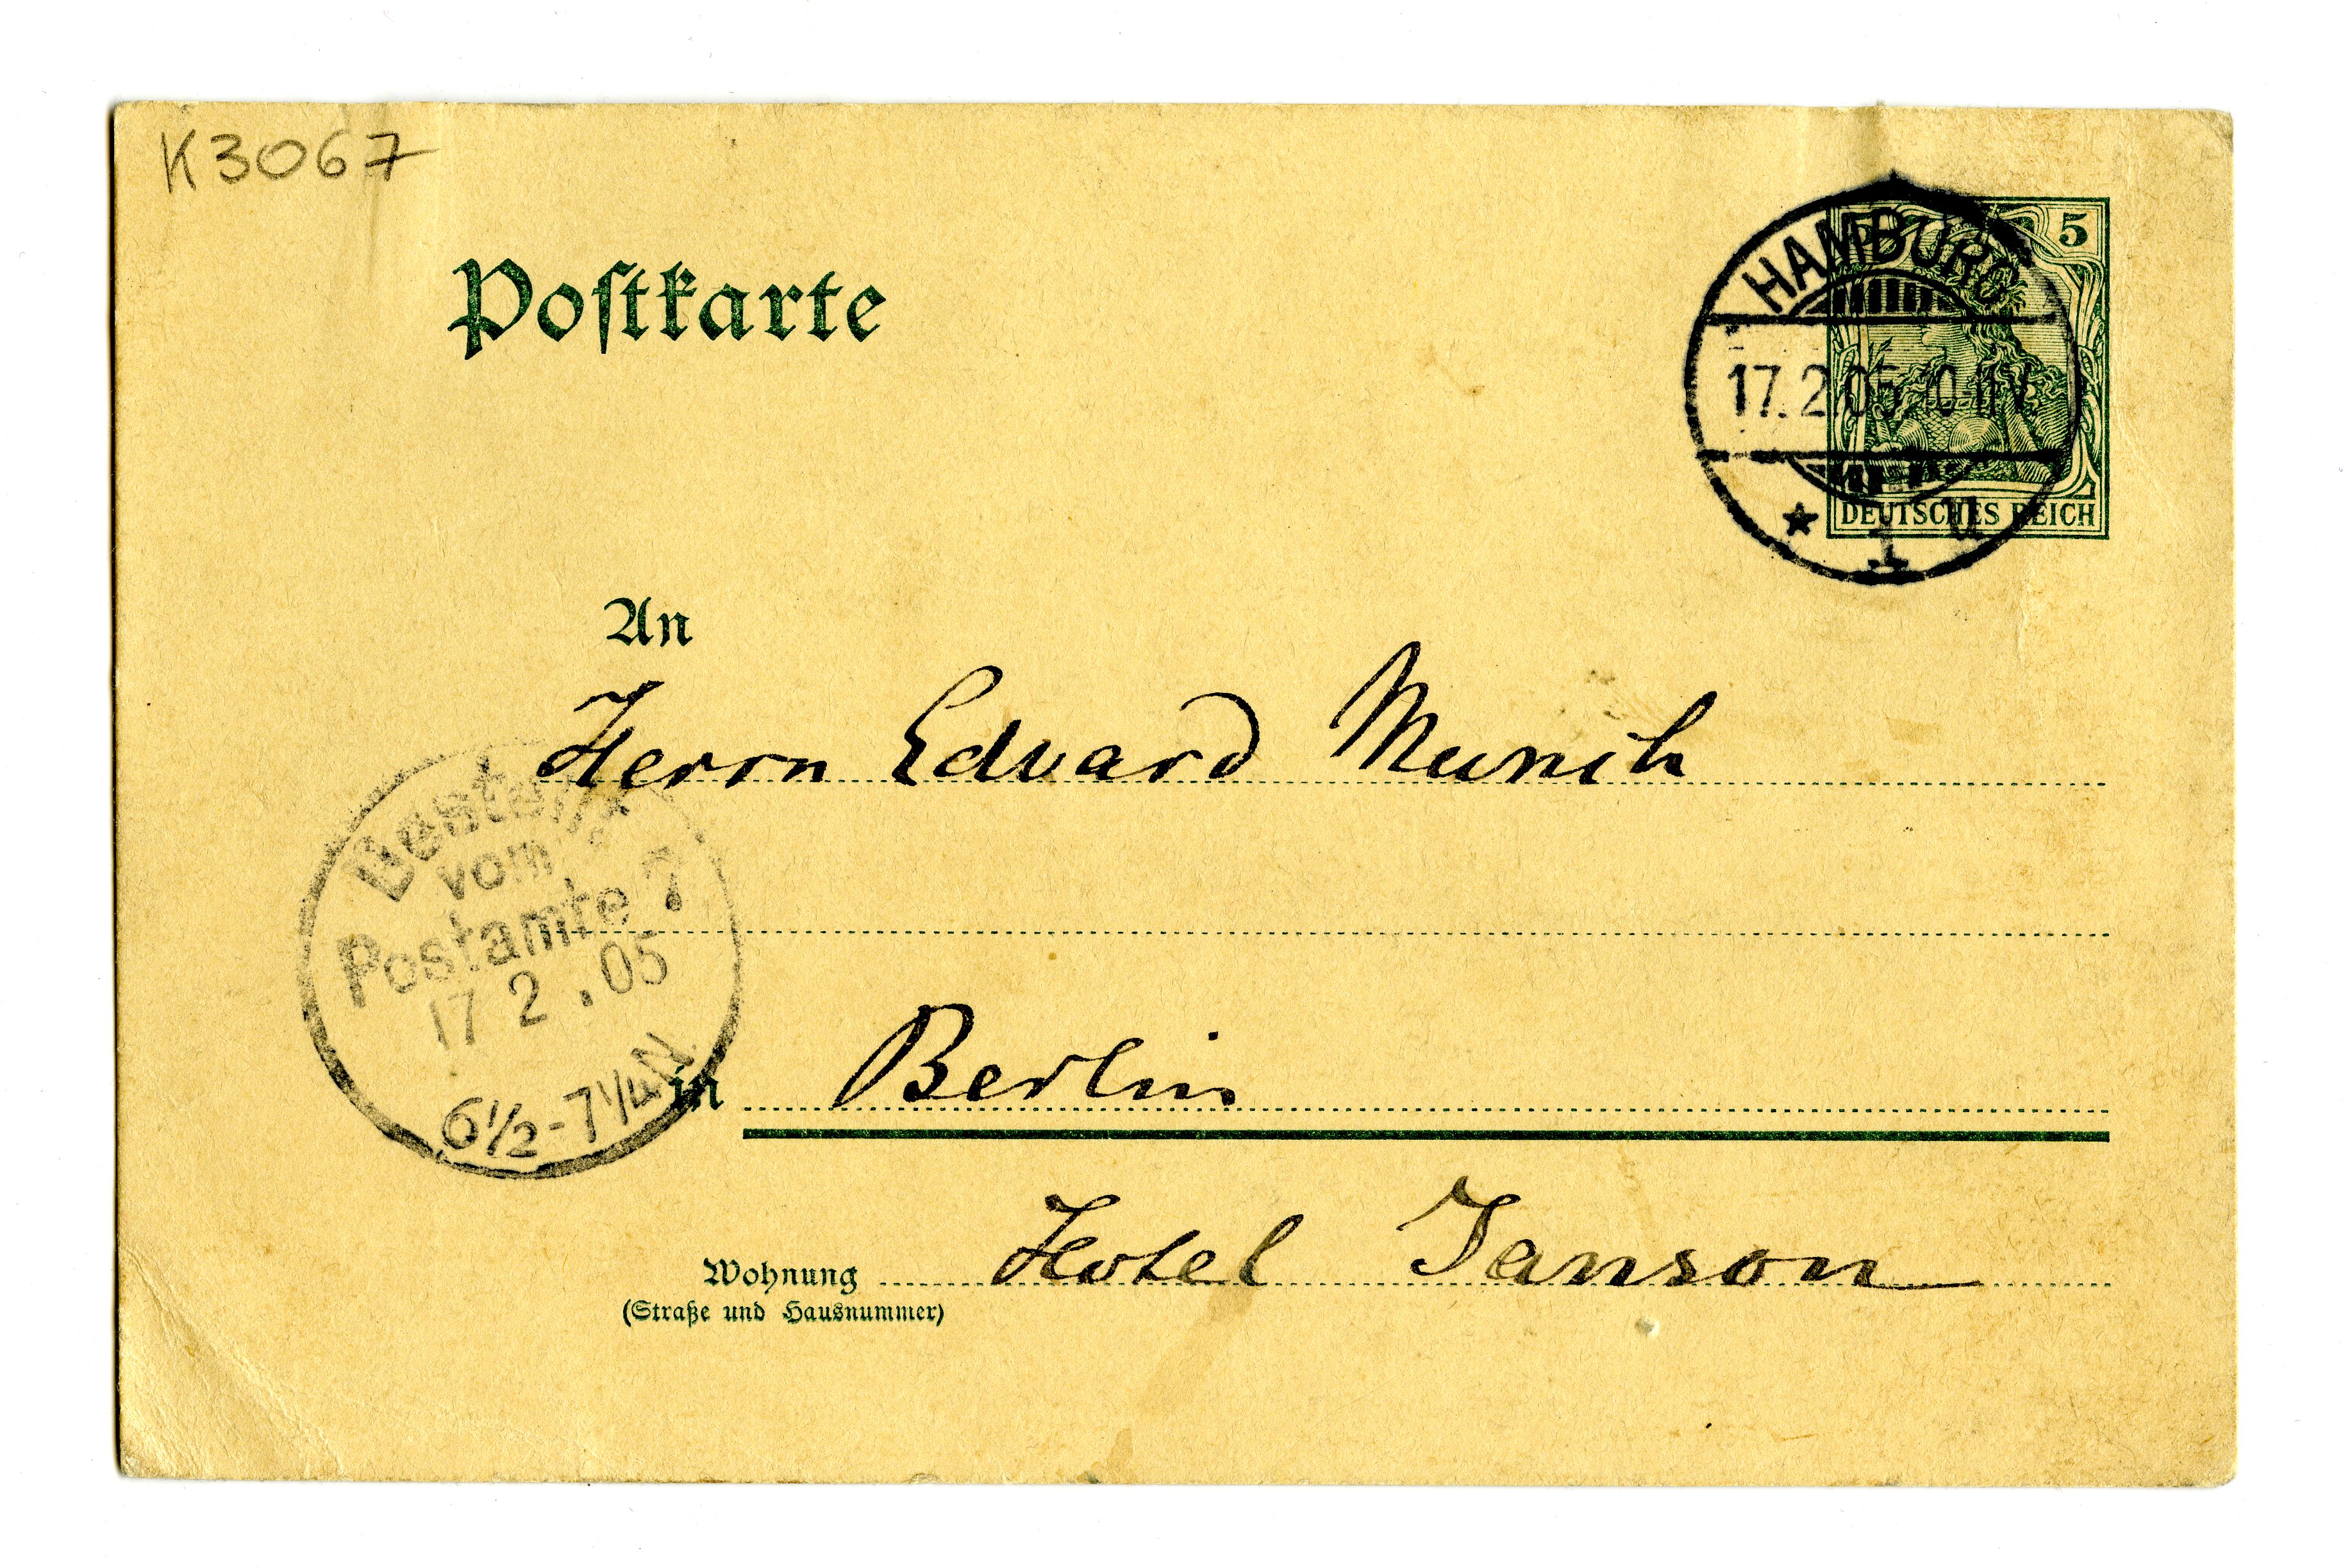 K3067
Postkarte
5
HAMBURG
17.2.05. 10-11V.
* 1 u
DEUTSCHES REICH
An
Herrn Edvard Munch
Bestellt
vom
Postamte 7
17 2 .05
6½-7¼N.
in Berlin
Wohnung Hotel Janson
(Straße und Hausnummer)